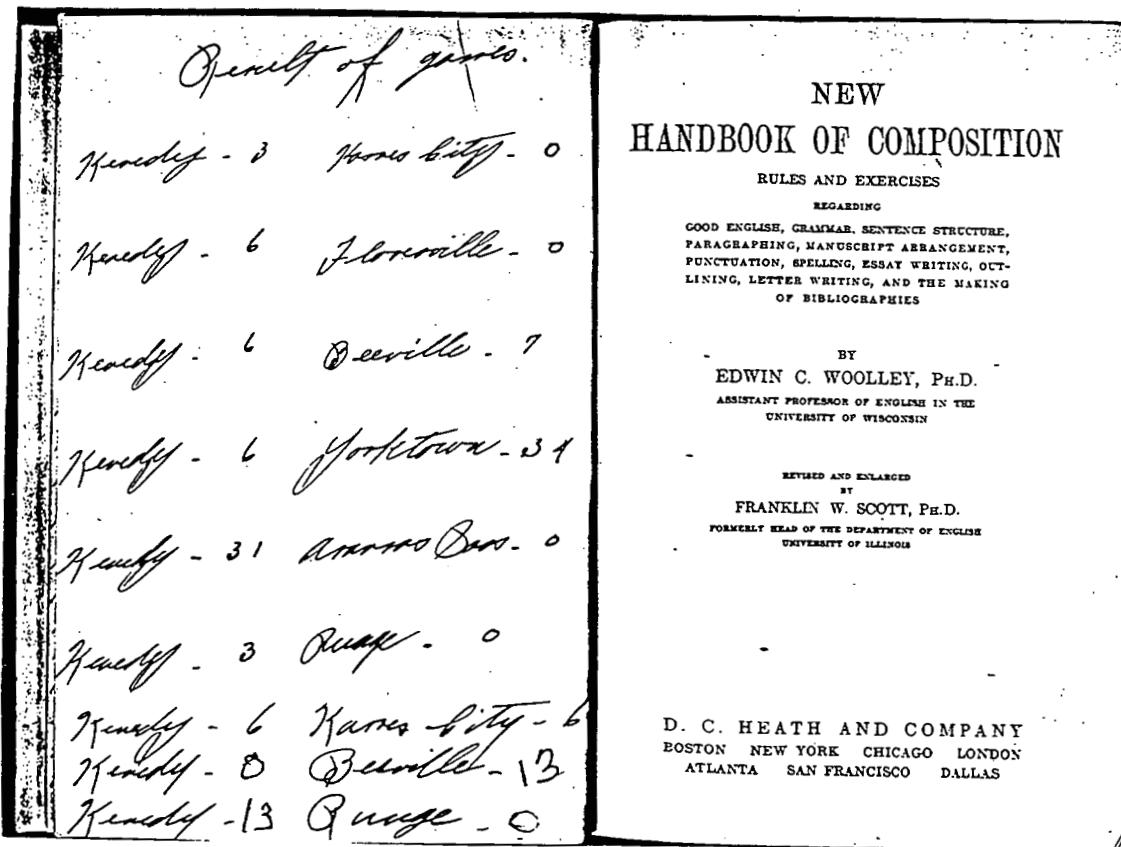 Result of games.
Kenedy - 3 Karnes City - 0
Kenedy - 6 Floresville - 0
Kenedy - 6 Beeville - 7
Kenedy - 6 Yorktown - 34
Kenedy - 31 Pass - 0
Kenedy - 3 Runge - 0
Kenedy - 6 Karnes City - 6
Kenedy - 0 Beeville - 13
Kenedy - 13 Runge - 0
NEW
HANDBOOK OF COMPOSITION
RULES AND EXERCISES
REGARDING
GOOD ENGLISH, GRAMMAR, SENTENCE STRUCTURE,
PARAGRAPHING, MANUSCRIPT ARRANGEMENT,
PUNCTUATION, SPELLING, ESSAY WRITING, OUT-
LINING, LETTER WRITING, AND THE MAKING
OF BIBLIOGRAPHIES
BY
EDWIN C. WOOLLEY, PH.D.
ASSISTANT PROFESSOR OF ENGLISH IN THE
UNIVERSITY OF WISCONSIN
REVISED AND ENLARGED
BY
FRANKLIN W. SCOTT, PH.D.
FORMERLY HEAD OF THE DEPARTMENT OF ENGLISH
UNIVERSITY OF ILLINOIS
D. C. HEATH AND COMPANY
BOSTON NEW YORK CHICAGO LONDON
ATLANTA SAN FRANCISCO DALLAS